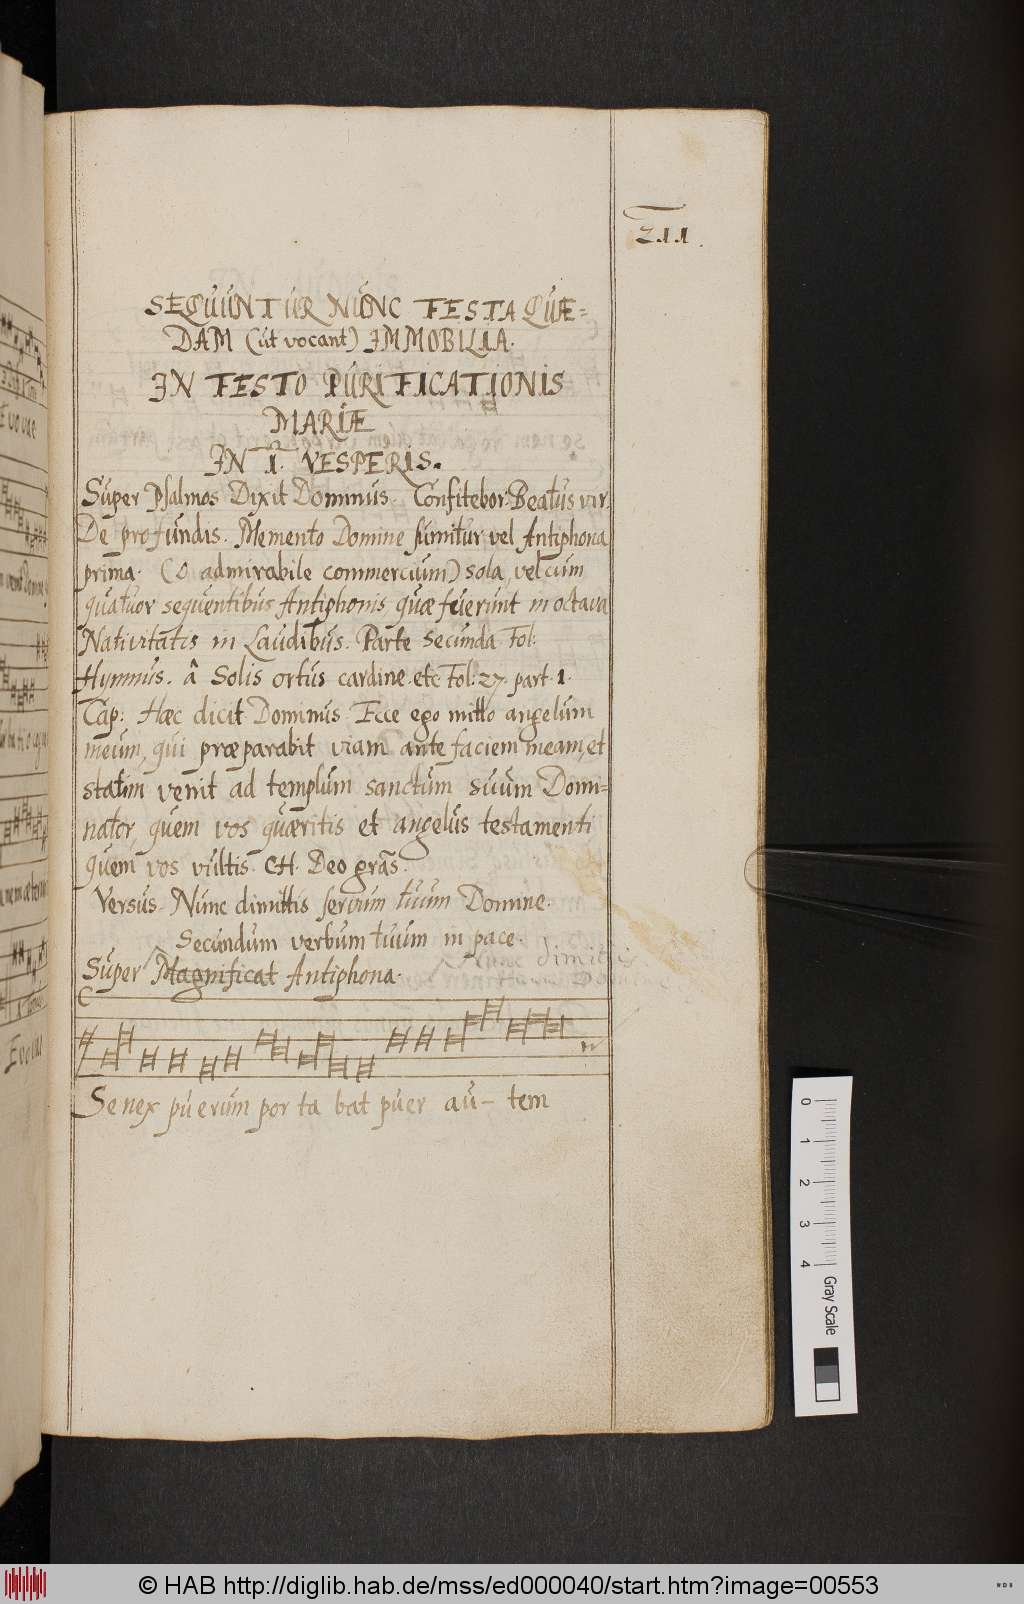 211.
SEQUUNTUR NUNC FESTA QUÆ=
DAM (ut vocant) IMMOBILIA.
IN FESTO PURIFICATIONIS
MARIÆ
IN I. VESPERIS.
Super Psalmos Dixit Dominus. Confitebor. Beatus vir.
De profundis. Memento Domine sumitur vel Antiphona
prima. (O admirabile commercium) sola, vel cum
quatuor sequentibus Antiphonis quæ fuerunt in octava
Nativitatis in Laudibus. Parte secunda. Fol:
Hymnus. â Solis ortus cardine. etc Fol: 27. part. 1.
Cap: Hæc dicit Dominus. Ecce ego mitto angelum
meum, qui præparabit viam ante faciem meam, et
statim venit ad templum sanctum suum Domi=
nator, quem vos quæritis et angelus testamenti
quem vos vultis. CH. Deo gras.
Versus. Nunc dimittis servum tuum Domine.
Secundum verbum tuum in pace.
Nunc dimittis
Super Magnificat Antiphona.
Senex puerum por ta bat puer au- tem
Evovae
0 1 2 3 4 Gray Scale
© HAB http://diglib.hab.de/mss/ed000040/start.htm?image=00553